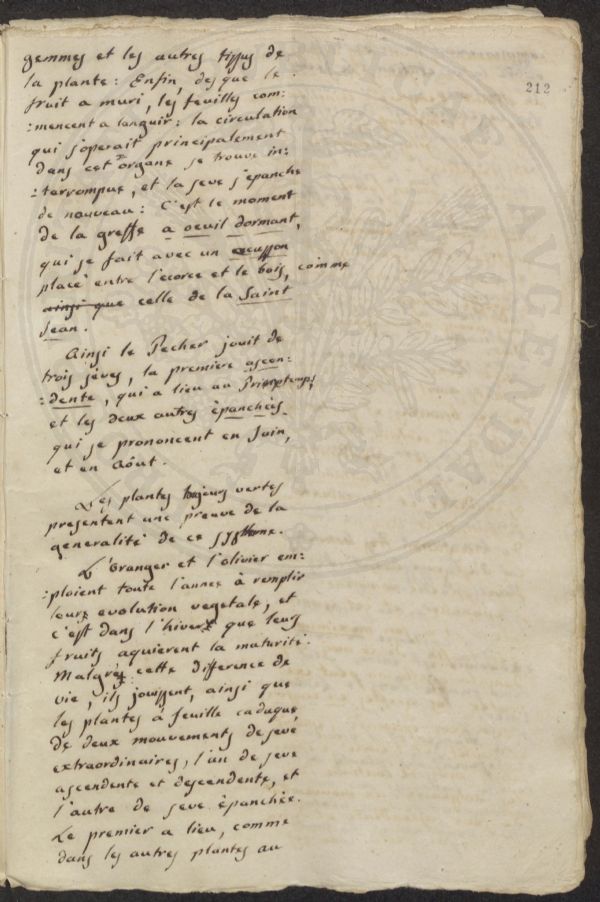 212
gemmes et les autres tissus de
la plante : Enfin, des que le
fruit a muri, les feuilles com:
:mencent a languir : la circulation
qui s'operait principalement
dans cet organe se trouve in:
:terrompue, et la seve s'epanche
de nouveau : C'est le moment
de la greffe a oeuil dormant,
qui se fait avec un ecusson
placé entre l'ecorce et le bois, comme
ainsi que celle de la Saint
Jean.
Ainsi le Pecher jouit de
trois seves, la premiere ascen:
:dente, qui a lieu au Printemps,
et les deux autres èpanchées
qui se prononcent en Juin,
et en Aôut.
Les plantes toujours vertes
presentent une preuve de la
generalité de ce systheme.
L'oranger et l'olivier em:
:ploient toute l'annee à remplir
leurs evolution vegetale, et
c'est dans l'hiver que leurs
fruits aquierent la maturité.
Malgrés cette difference de
vie, ils jouissent, ainsi que
les plantes à feuille caduque,
de deux mouvements de seve
extraordinaires, l'un de seve
ascendente et descendente, et
l'autre de seve èpanchée.
Le premier a lieu, comme
dans les autres plantes au